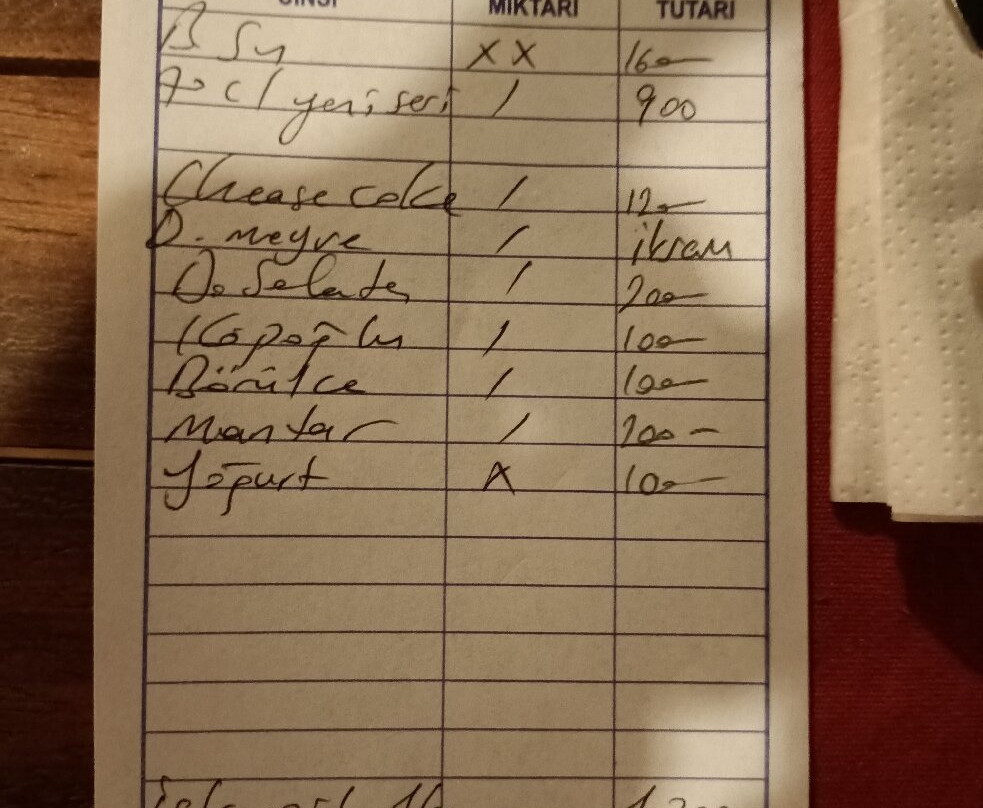 CİNSİ MİKTARI TUTARI
B Su XX 160
cl yeni seri / 900
Chease cake / 120
D. meyve / ikram
D. Salata / 200
Köpoğlu / 100
Börülce / 100
Mantar / 200
Yoğurt X 100